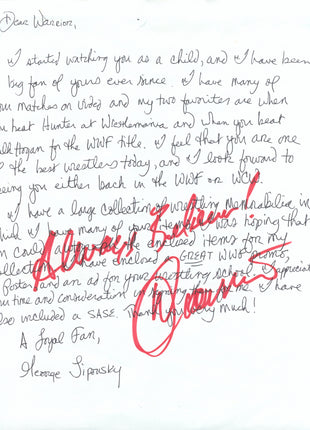 Dear Warrior,
I started watching you as a child, and I have been
big fan of yours ever since. I have many of
your matches on video and my two favorites are when
you beat Hunter at Wrestlemania and when you beat
Hogan for the WWF title. I feel that you are one
the best wrestlers today, and I look forward to
seeing you either back in the WWF or WCW.
I have a large collection of wrestling memorabilia in
which I have many of your items. I was hoping that
you could the enclosed items for my
collection. I have enclosed GREAT WWF promo,
poster and an ad for your wrestling school. I appreciate
your time and consideration in signing these for me. I have
also included a SASE. Thank you very much!
A Loyal Fan,
George
Always Believe!
Warrior